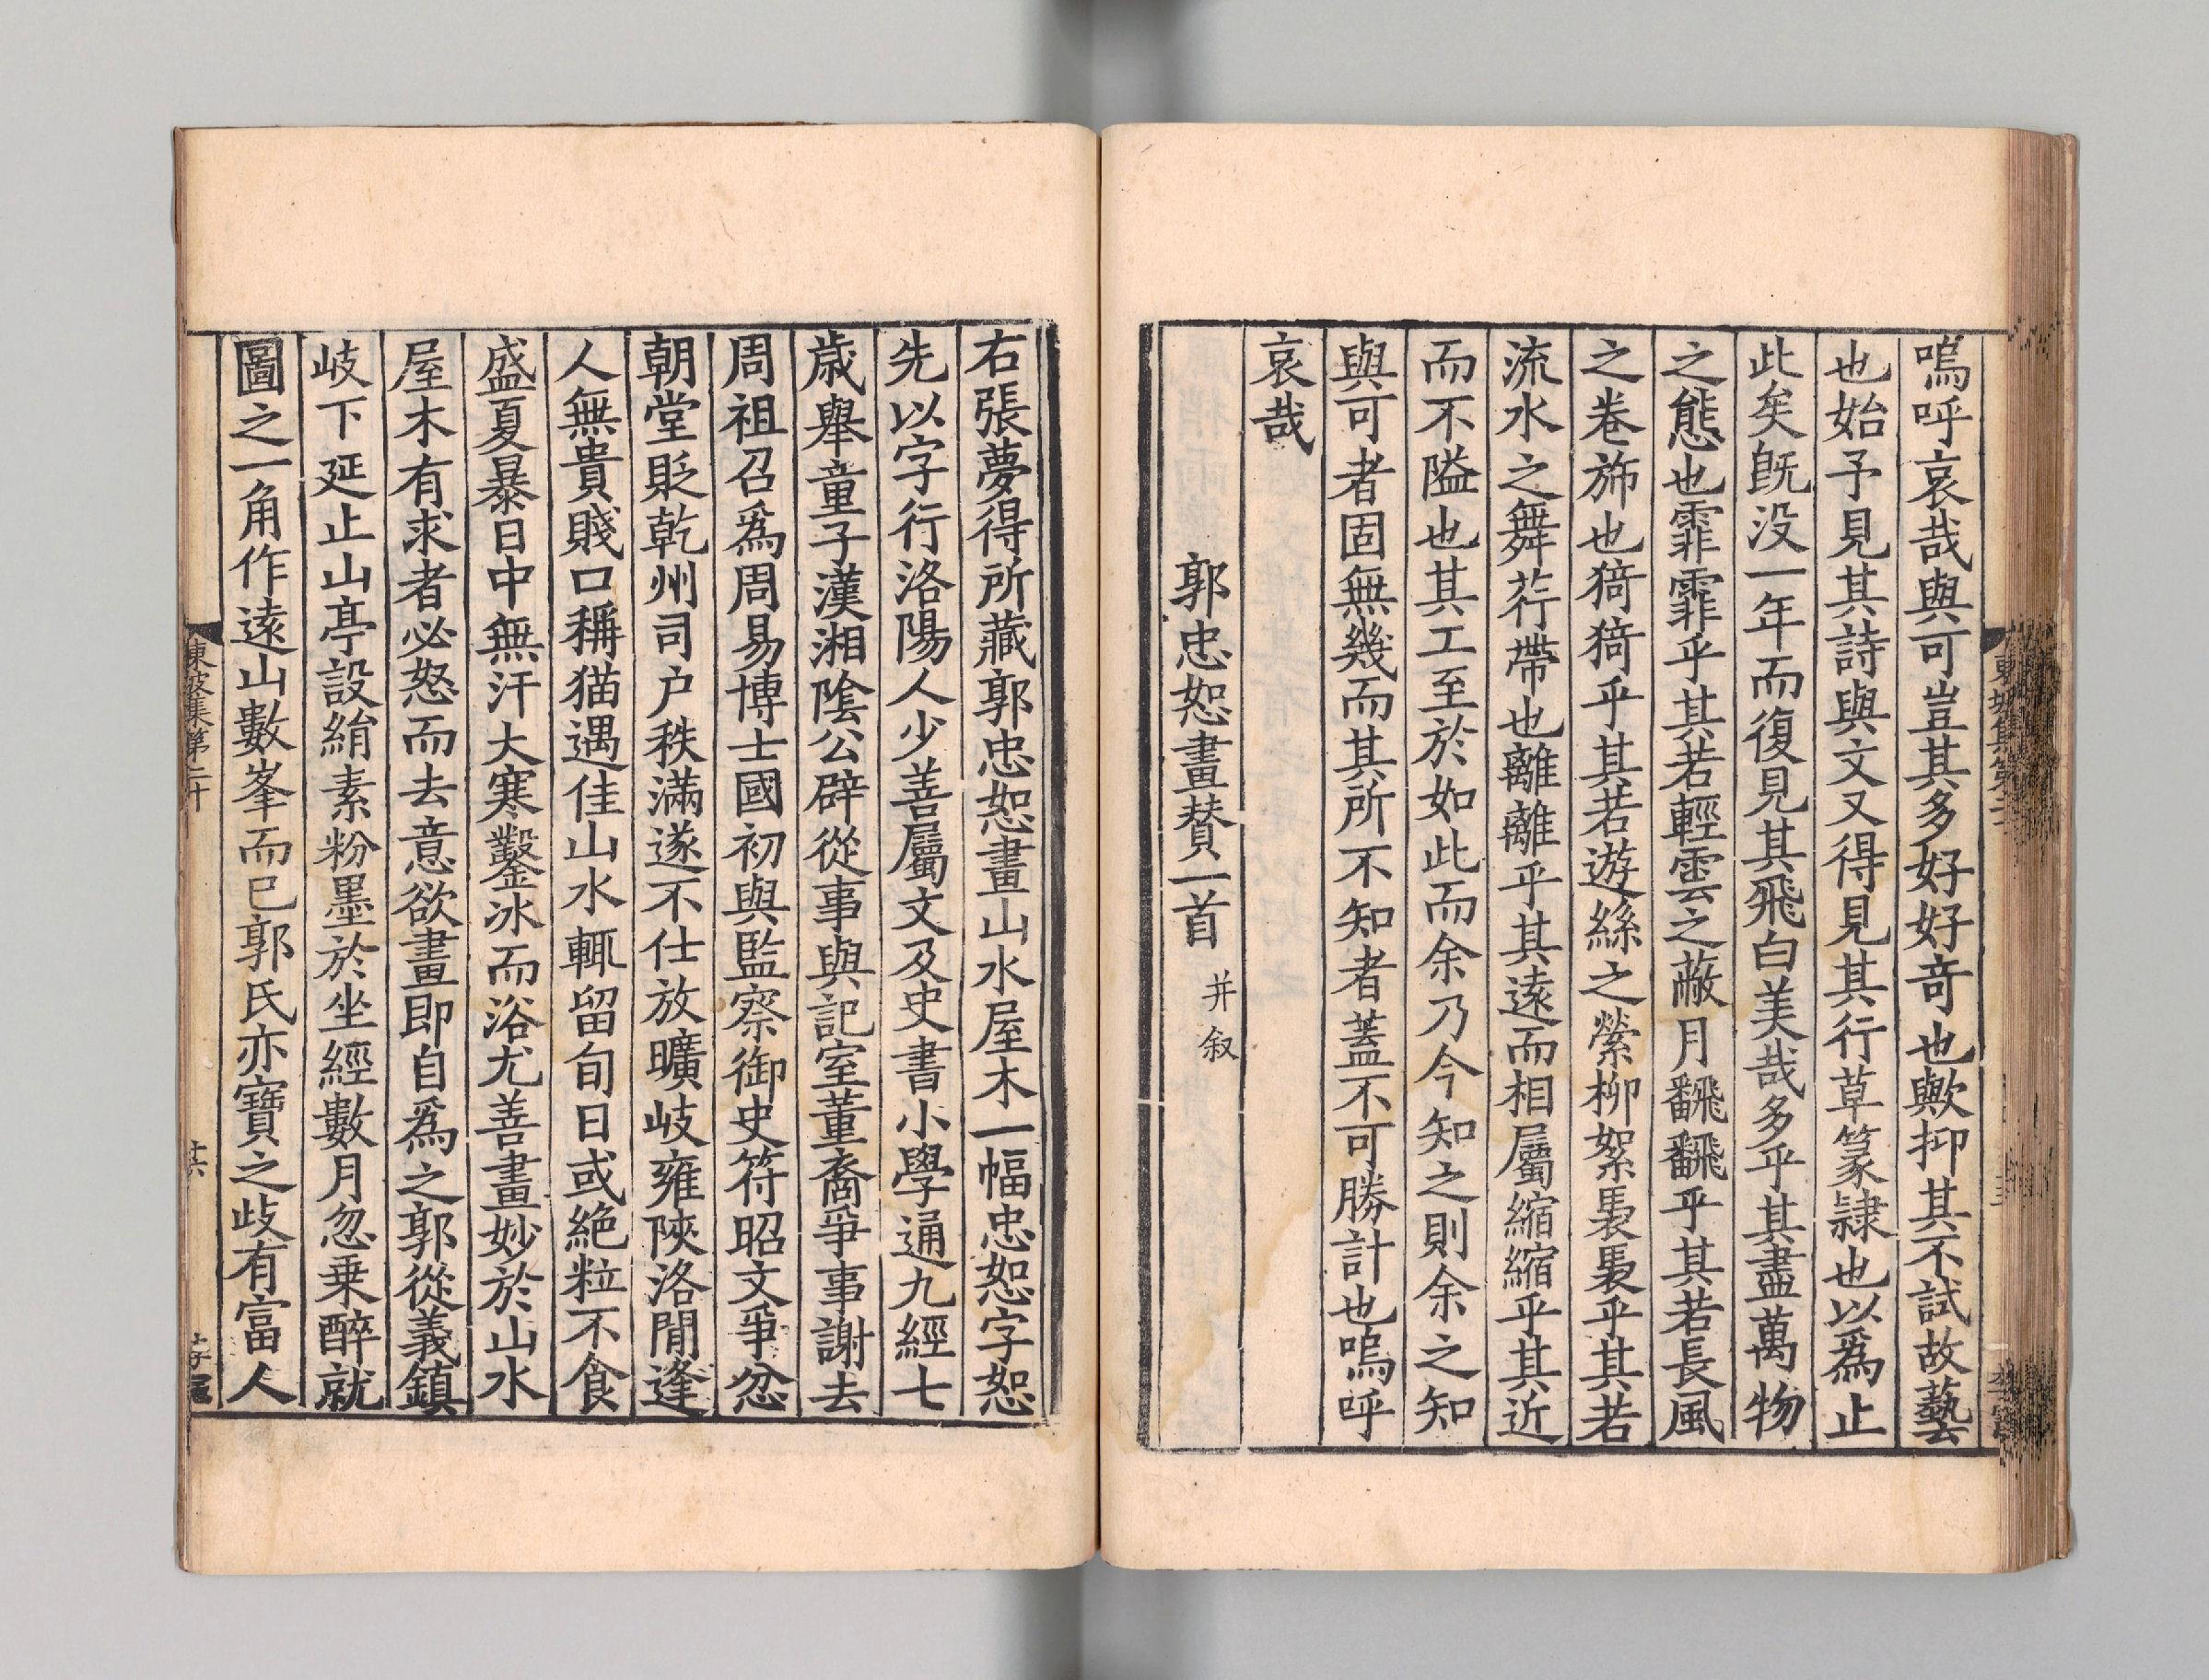 嗚呼哀哉與可豈其多好好奇也歟抑其不試故藝
也始予見其詩與文又得見其行草篆隷也以爲止
此矣旣没一年而復見其飛白美哉多乎其盡萬物
之態也霏霏乎其若輕雲之蔽月飜飜乎其若長風
之卷斾也猗猗乎其若遊絲之縈柳絮褭褭乎其若
流水之舞荇帶也離離乎其遠而相屬縮縮乎其近
而不隘也其工至於如此而余乃今知之則余之知
與可者固無幾而其所不知者蓋不可勝計也嗚呼
哀哉
郭忠恕畫賛一首 并叙
右張夢得所藏郭忠恕畫山水屋木一幅忠恕字恕
先以字行洛陽人少善屬文及史書小學通九經七
歳舉童子漢湘陰公辟從事與記室董裔爭事謝去
周祖召爲周易博士國初與監察御史符昭文爭忿
朝堂貶乾州司户秩滿遂不仕放曠岐雍陝洛間逢
人無貴賤口稱猫遇佳山水輒留旬日或絶粒不食
盛夏暴日中無汗大寒鑿冰而浴尤善畫妙於山水
屋木有求者必怒而去意欲畫即自爲之郭從義鎮
岐下延止山亭設絹素粉墨於坐經數月忽乗醉就
圖之一角作遠山數峯而已郭氏亦寳之歧有富人
東坡集第二十
十六